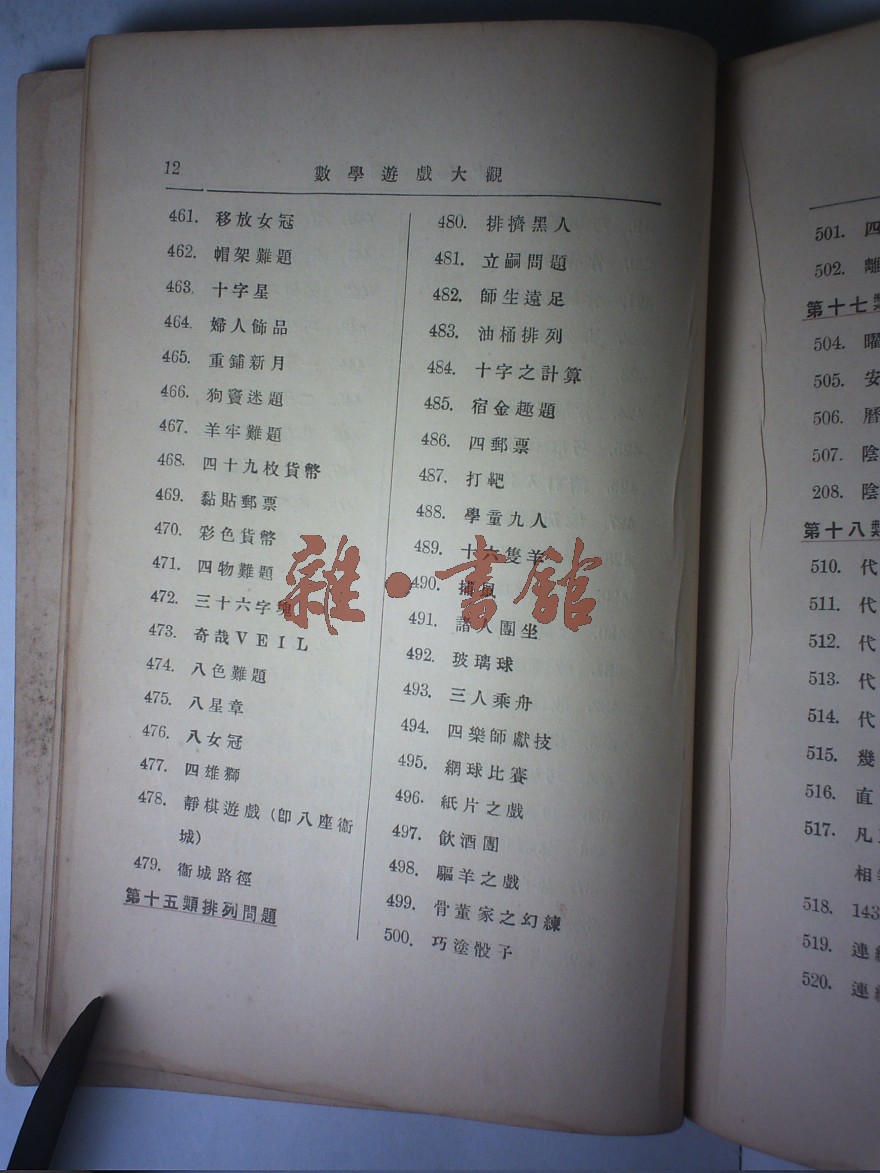 12
數學遊戲大觀
461. 移放女冠
462. 帽架難題
463. 十字星
464. 婦人飾品
465. 重鋪新月
466. 狗竇迷題
467. 羊牢難題
468. 四十九枚貨幣
469. 黏貼郵票
470. 彩色貨幣
471. 四物難題
472. 三十六字塊
473. 奇哉VEIL
474. 八色難題
475. 八星章
476. 八女冠
477. 四雄獅
478. 靜棋遊戲(即八座衞
城)
479. 衞城路徑
第十五類排列問題
480. 排擠黑人
481. 立嗣問題
482. 師生遠足
483. 油桶排列
484. 十字之計算
485. 宿金趣題
486. 四郵票
487. 打靶
488. 學童九人
489. 十六隻羊
490. 捕鼠
491. 諸人團坐
492. 玻璃球
493. 三人乘舟
494. 四樂師獻技
495. 網球比賽
496. 紙片之戲
497. 飲酒團
498. 驅羊之戲
499. 骨董家之幻練
500. 巧塗骰子
雜·書館
501. 四
502. 離
第十七類
504. 曜
505. 安
506. 曆
507. 陰
208. 陰
第十八類
510. 代
511. 代
512. 代
513. 代
514. 代
515. 幾
516. 直
517. 凡
相
518. 143
519. 連
520. 連